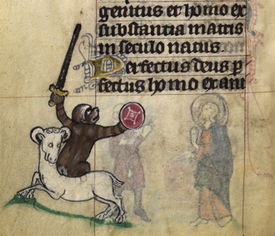 genitus et homo ex
substantia matris
in seculo natus
Perfectus deus per
fectus homo ex ani